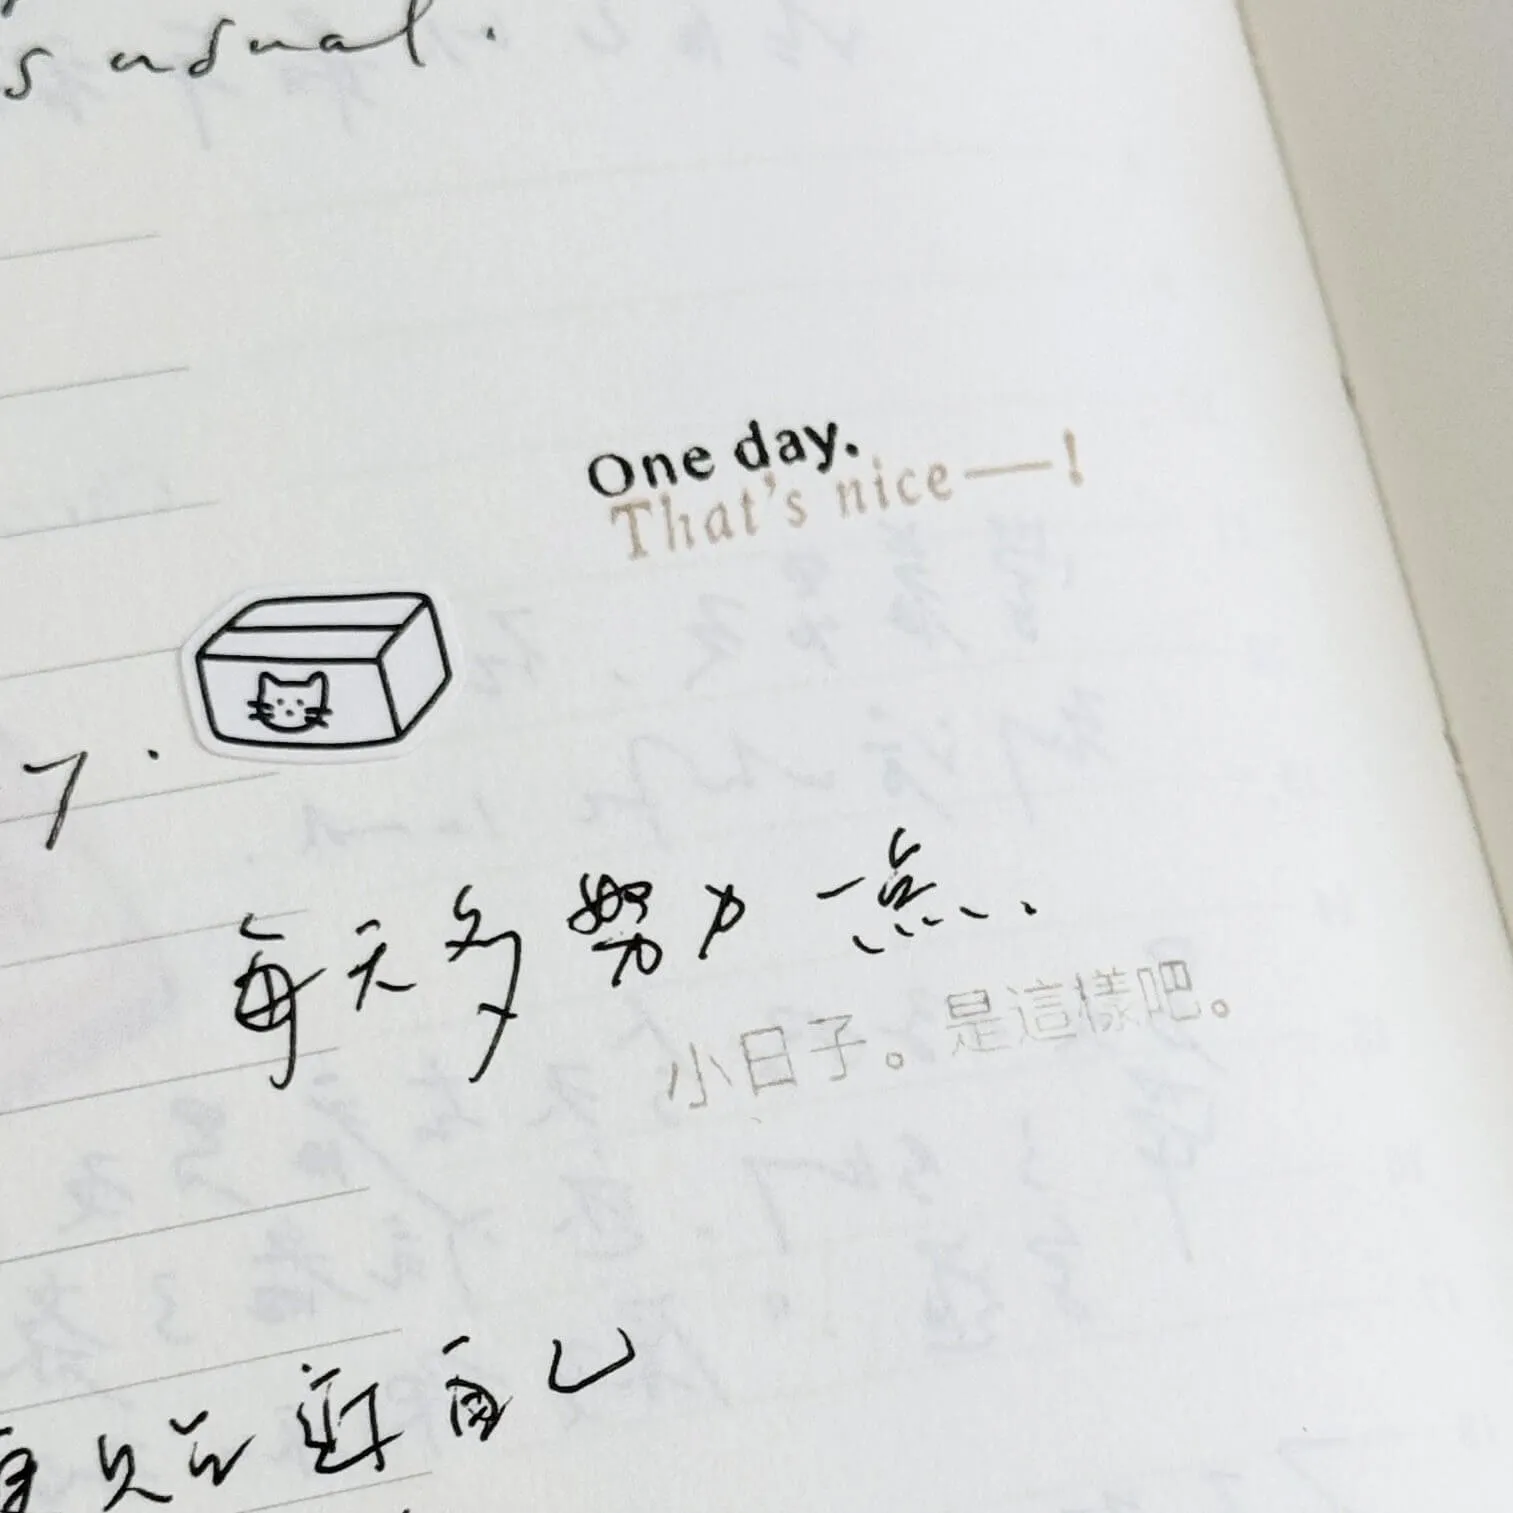 s usual.
One day.
That's nice—!
了.
每天多努力一点.
小日子。是這樣吧。
自己